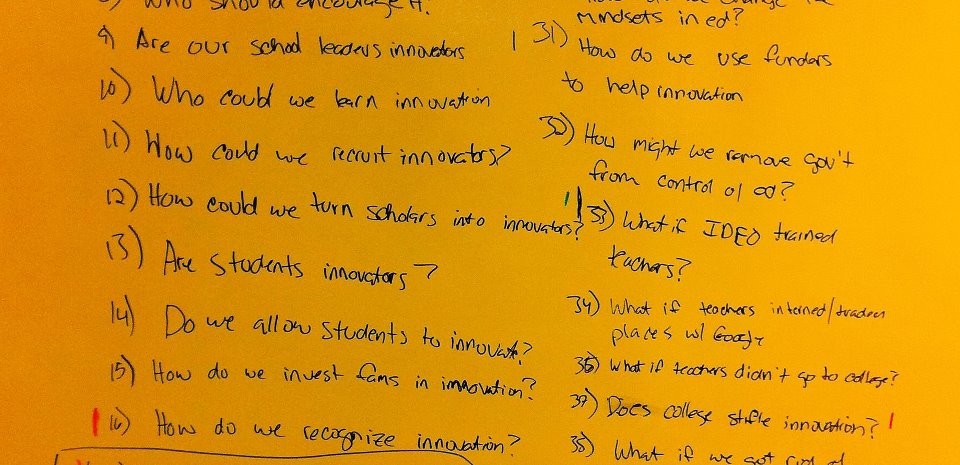 Who should encourage it?
9) Are our school leaders innovators
10) Who could we learn innovation
11) How could we recruit innovators?
12) How could we turn scholars into innovators?
13) Are students innovators?
14) Do we allow students to innovate?
15) How do we invest fams in innovation?
16) How do we recognize innovation?
mindsets in ed?
31) How do we use funders
to help innovation
32) How might we remove gov't
from control of ed?
33) What if IDEO trained
teachers?
34) What if teachers interned/traded
places w/ Google
36) What if teachers didn't go to college?
37) Does college stifle innovation?
38) What if we got rid of